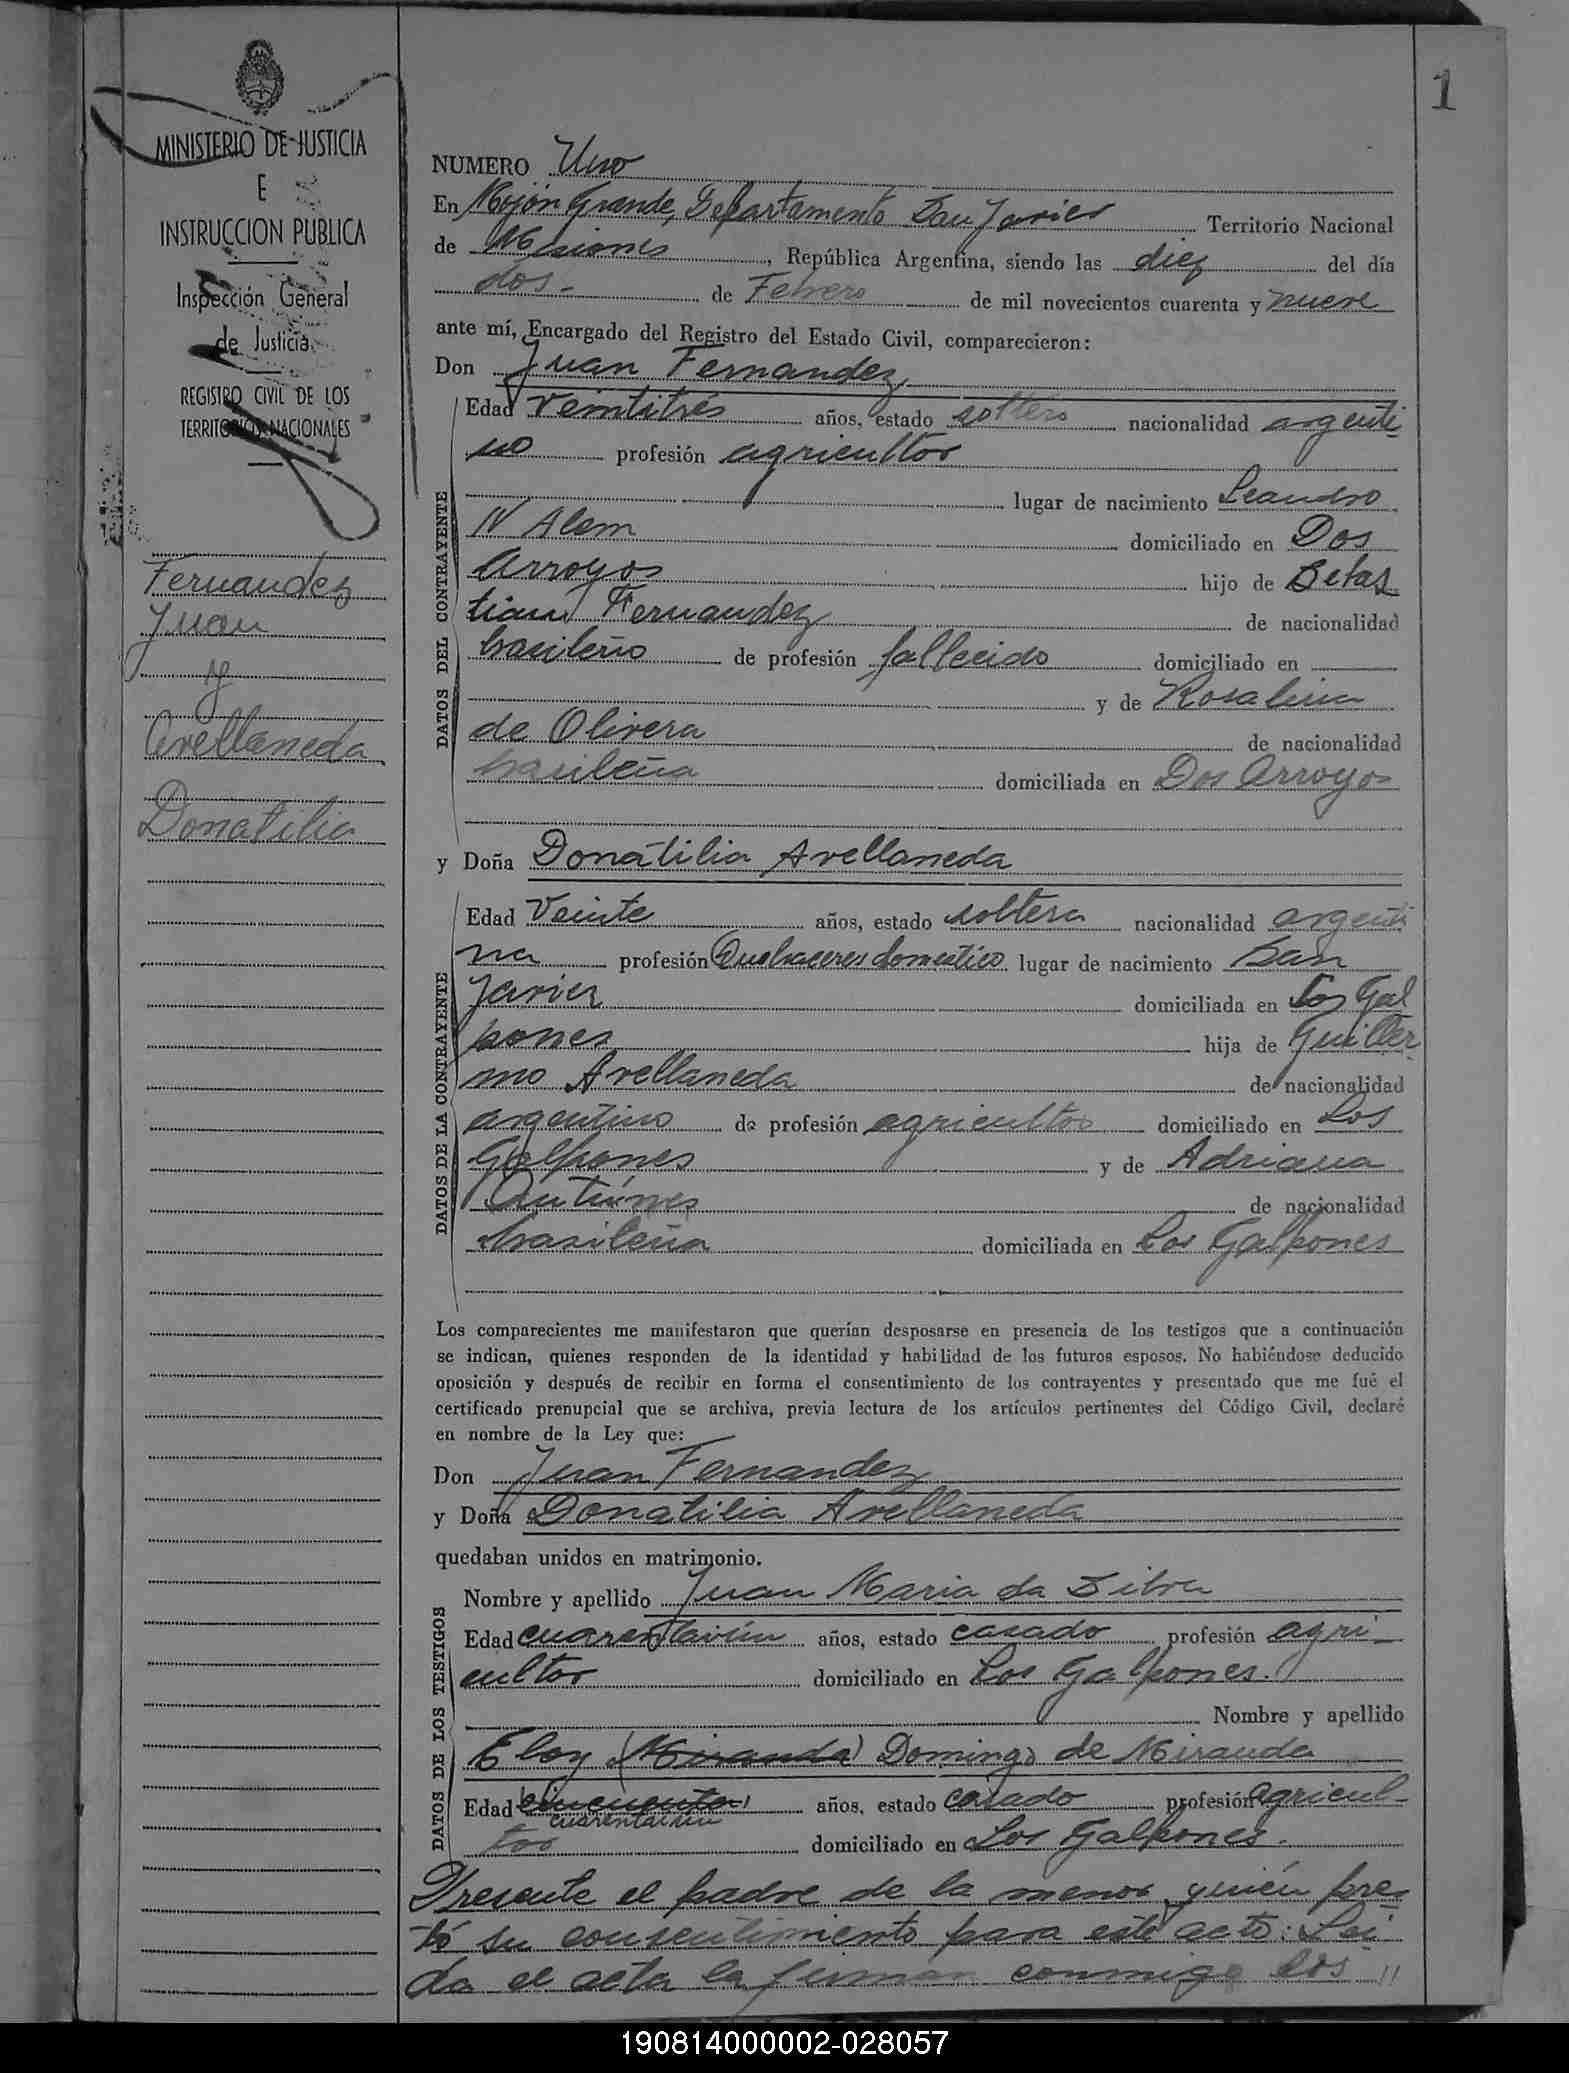 1
MINISTERIO DE JUSTICIA
E
INSTRUCCION PUBLICA
Inspección General
de Justicia
REGISTRO CIVIL DE LOS
TERRITORIOS NACIONALES
Fernandez
Juan
y
Avellaneda
Donatilia
NUMERO Uno
En Mojón Grande, Departamento San Javier Territorio Nacional
de Misiones, República Argentina, siendo las diez del día
dos.- de Febrero de mil novecientos cuarenta y nueve
ante mí, Encargado del Registro del Estado Civil, comparecieron:
Don Juan Fernandez,
DATOS DEL CONTRAYENTE
Edad veintitrés años, estado soltero nacionalidad argenti
no profesión agricultor
lugar de nacimiento Leandro
N Alem domiciliado en Dos
Arroyos hijo de Sebas
tian Fernandez de nacionalidad
brasileño de profesión fallecido domiciliado en
y de Rosalina
de Olivera de nacionalidad
brasileña domiciliada en Dos Arroyos
y Doña Donatilia Avellaneda
DATOS DE LA CONTRAYENTE
Edad Veinte años, estado soltera nacionalidad argenti
na profesión Quehaceres domestico lugar de nacimiento San
Javier domiciliada en Los Gal
pones hija de Guiller
mo Avellaneda de nacionalidad
argentino de profesión agricultor domiciliado en Los
Galpones y de Adriana
Antúnes de nacionalidad
brasileña domiciliada en Los Galpones
Los comparecientes me manifestaron que querían desposarse en presencia de los testigos que a continuación
se indican, quienes responden de la identidad y habilidad de los futuros esposos. No habiéndose deducido
oposición y después de recibir en forma el consentimiento de los contrayentes y presentado que me fué el
certificado prenupcial que se archiva, previa lectura de los artículos pertinentes del Código Civil, declaré
en nombre de la Ley que:
Don Juan Fernandez
y Doña Donatilia Avellaneda
quedaban unidos en matrimonio.
DATOS DE LOS TESTIGOS
Nombre y apellido Juan Maria da Silva
Edad cuarentaiún años, estado casado profesión agri-
cultor domiciliado en Los Galpones.
Nombre y apellido
Eloy (Miranda) Domingo de Miranda
Edad (cincuenta) años, estado casado profesión agricul-
cuarentaiún
tor domiciliado en Los Galpones.
Presente el padre de la menor, quién pres
tó su consentimiento para este acto: Lei
da el acta la firman conmigo los "
190814000002-028057